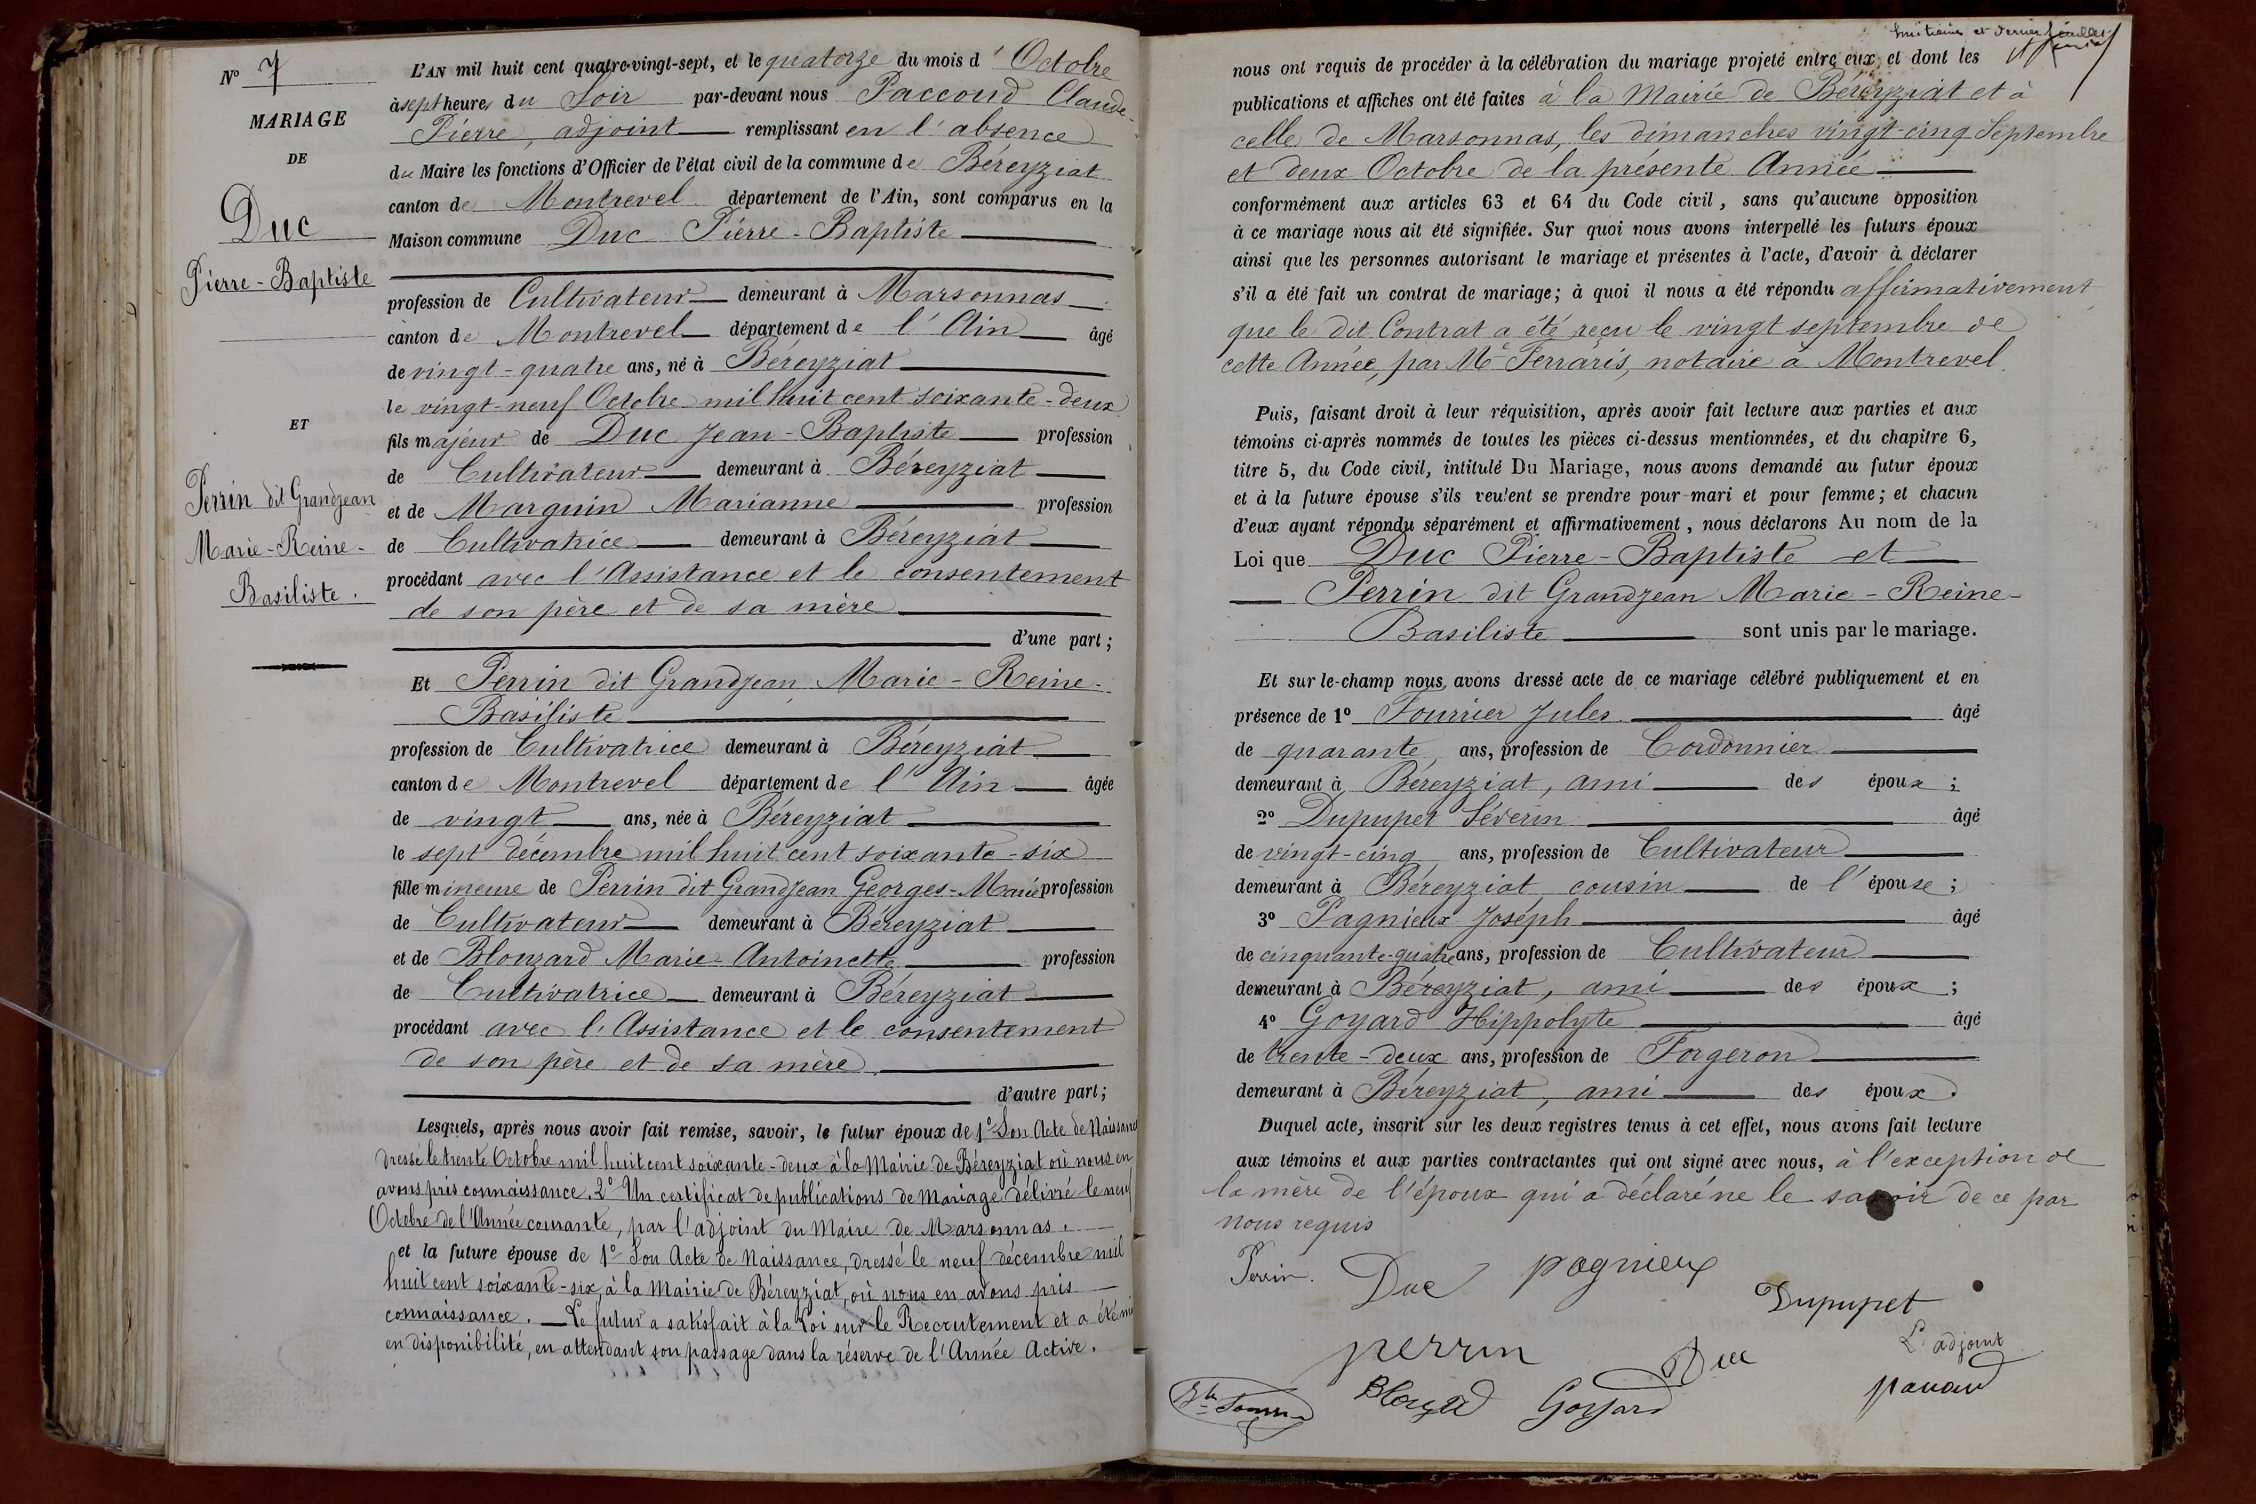 N° 7
MARIAGE
DE
Duc
Pierre-Baptiste
ET
Perrin dit Grandjean
Marie-Reine-
Basiliste.
L'AN mil huit cent quatre-vingt-sept, et le quatorze du mois d'Octobre
à sept heures du Soir par-devant nous Paccoud Claude-
Pierre, adjoint remplissant en l'absence
du Maire les fonctions d'Officier de l'état civil de la commune de Béreyziat
canton de Montrevel département de l'Ain, sont comparus en la
Maison commune Duc Pierre-Baptiste
profession de Cultivateur demeurant à Marsonnas
canton de Montrevel département de l'Ain âgé
de vingt-quatre ans, né à Béreyziat
le vingt-neuf Octobre mil huit cent soixante-deux
fils majeur de Duc Jean-Baptiste profession
de Cultivateur demeurant à Béreyziat
et de Marguin Marianne profession
de Cultivatrice demeurant à Béreyziat
procédant avec l'Assistance et le consentement
de son père et de sa mère
d'une part;
Et Perrin dit Grandjean Marie-Reine-
Basiliste
profession de Cultivatrice demeurant à Béreyziat
canton de Montrevel département de l'Ain âgée
de vingt ans, née à Béreyziat
le sept décembre mil huit cent soixante-six
fille mineure de Perrin dit Grandjean Georges-Marie profession
de Cultivateur demeurant à Béreyziat
et de Blouzard Marie-Antoinette profession
de Cultivatrice demeurant à Béreyziat
procédant avec l'Assistance et le consentement
de son père et de sa mère.
d'autre part;
Lesquels, après nous avoir fait remise, savoir, le futur époux de 1° Son Acte de Naissance
dressé le trente Octobre mil huit cent soixante-deux à la Mairie de Béreyziat où nous en
avons pris connaissance. 2° Un certificat de publications de Mariage délivré le neuf
Octobre de l'Année courante, par l'adjoint du Maire de Marsonnas.
et la future épouse de 1° Son Acte de Naissance, dressé le neuf décembre mil
huit cent soixante-six, à la Mairie de Béreyziat, où nous en avons pris
connaissance. Le futur a satisfait à la Loi sur le Recrutement et a été mis
en disponibilité, en attendant son passage dans la réserve de l'Armée Active.
huitième et dernier feuillet
nous ont requis de procéder à la célébration du mariage projeté entre eux, et dont les
publications et affiches ont été faites à la Mairie de Béreyziat et à
celle de Marsonnas, les dimanches vingt-cinq Septembre
et deux Octobre de la présente Année
conformément aux articles 63 et 64 du Code civil, sans qu'aucune opposition
à ce mariage nous ait été signifiée. Sur quoi nous avons interpellé les futurs époux
ainsi que les personnes autorisant le mariage et présentes à l'acte, d'avoir à déclarer
s'il a été fait un contrat de mariage; à quoi il nous a été répondu affirmativement
que le dit Contrat a été reçu le vingt septembre de
cette Année, par Me Ferraris, notaire à Montrevel.
Puis, faisant droit à leur réquisition, après avoir fait lecture aux parties et aux
témoins ci-après nommés de toutes les pièces ci-dessus mentionnées, et du chapitre 6,
titre 5, du Code civil, intitulé Du Mariage, nous avons demandé au futur époux
et à la future épouse s'ils veulent se prendre pour mari et pour femme; et chacun
d'eux ayant répondu séparément et affirmativement, nous déclarons Au nom de la
Loi que Duc Pierre-Baptiste et
Perrin dit Grandjean Marie-Reine-
Basiliste sont unis par le mariage.
Et sur-le-champ nous avons dressé acte de ce mariage célébré publiquement et en
présence de 1° Fourrier Jules âgé
de quarante ans, profession de Cordonnier
demeurant à Béreyziat, ami des époux;
2° Dupupet Séverin âgé
de vingt-cinq ans, profession de Cultivateur
demeurant à Béreyziat, cousin de l'épouse;
3° Pagnieux Joseph âgé
de cinquante-quatre ans, profession de Cultivateur
demeurant à Béreyziat, ami des époux;
4° Goyard Hippolyte âgé
de trente-deux ans, profession de Forgeron
demeurant à Béreyziat, ami des époux.
Duquel acte, inscrit sur les deux registres tenus à cet effet, nous avons fait lecture
aux témoins et aux parties contractantes qui ont signé avec nous, à l'exception de
la mère de l'époux qui a déclaré ne le savoir de ce par
nous requis
Perrin. Duc pagnieux
Dupupet
perrin Duc L'adjoint
Goyard